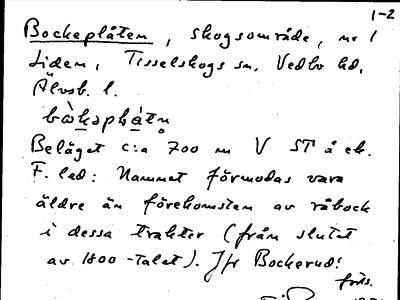 1-2
Bockeplåten, skogsområde, nr 1
Liden, Tisselskogs sn, Vedbo hd,
Älvsb. l.
bòkəphàtn̥
Beläget c:a 700 m V ST å ek.
F. led: Namnet förmodas vara
äldre än förekomsten av råbock
i dessa trakter (från slutet
av 1800-talet). Jfr Bockerud!
forts.